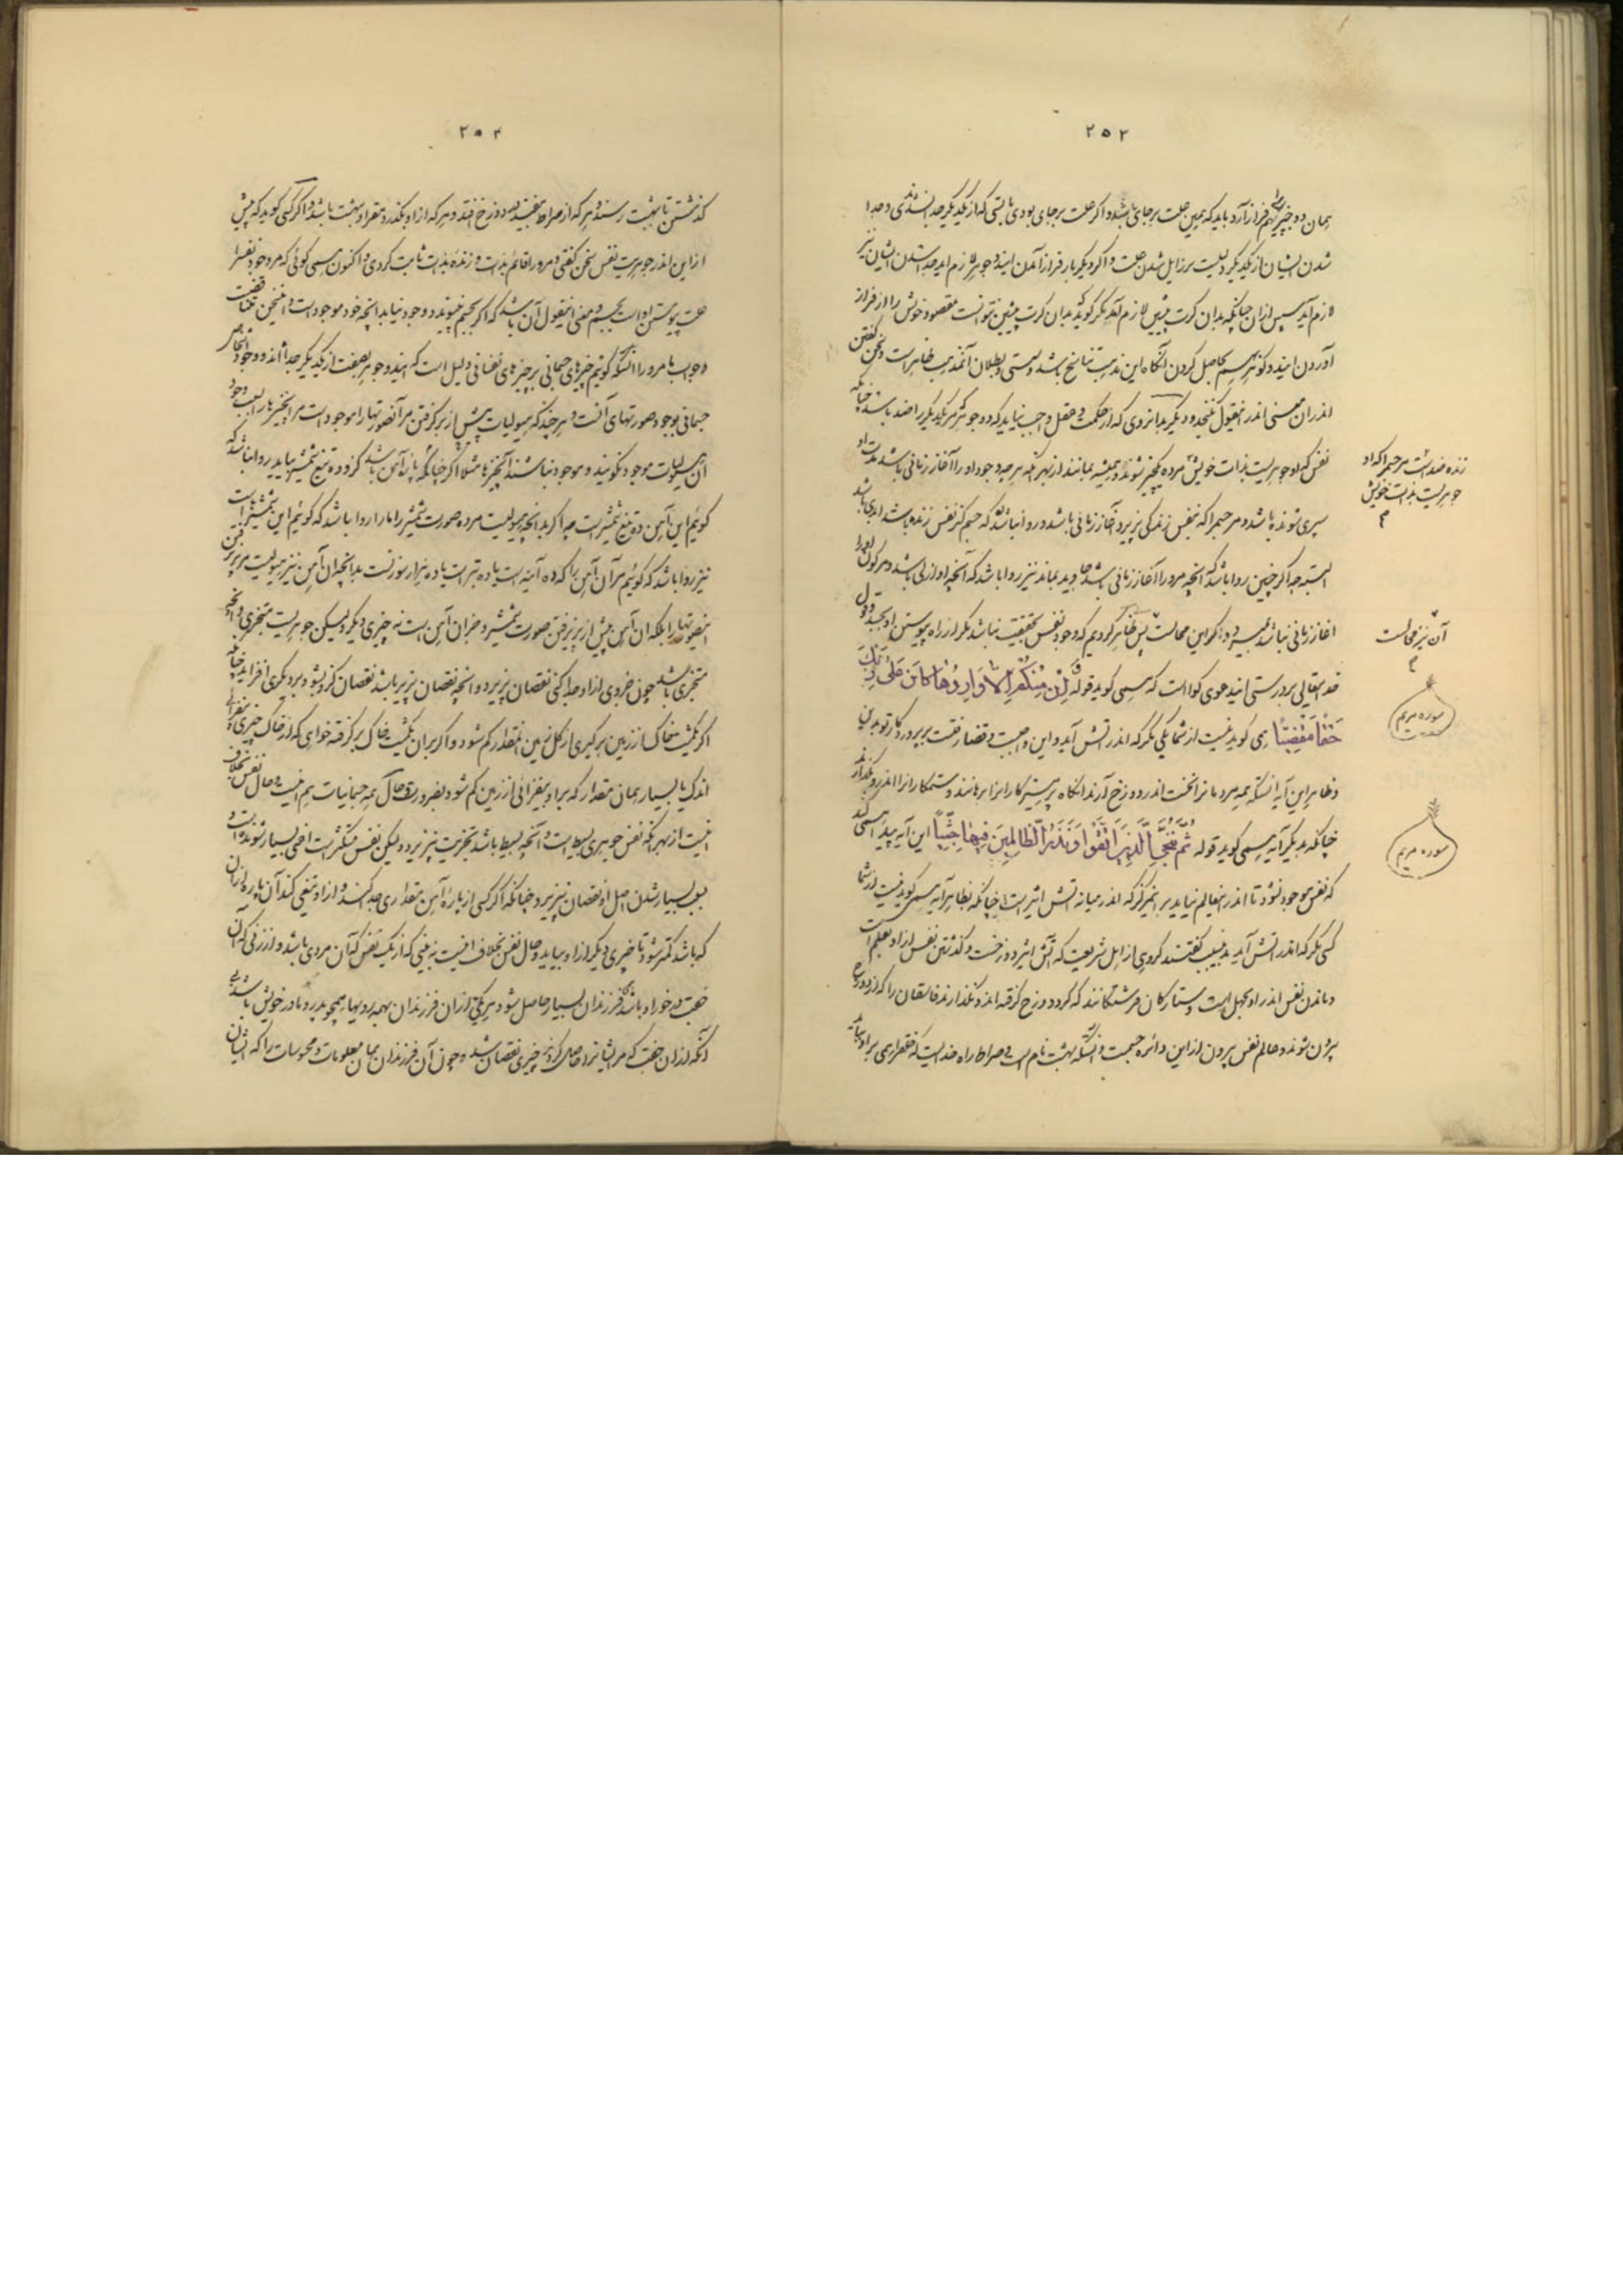 ۲۵۳
همان دو چیز را بهم فراز آرد باید که همین علت بر جای باشد و اگر علت بر جای بودی بایستی که از یکدیگر جدا نشدندی و جدا
شدن ایشان از یکدیگر دلیلست بر زایل شدن علت و اگر دیگر بار فراز آمدن این دو جوهر لازم آید جدا شدن ایشان نیز
لازم آید سپس ازان چنانکه بدان کرت پیشین لازم آمد مگر گوید که بدان کرت پیشین نتوانست مقصود خویش را از فراز
آوردن این دو گوهر بحاصل کردن آنگاه این مذهب تناسخ باشد و سستی و بطلان آن مذهب ظاهر است و سخن گفتن
اندران معنی اندر این قول نگنجد و دیگر بدانروی که از حکمت و عقل واجب نیاید که دو جوهر که مر یکدیگر را ضد باشند چنانکه
نفس که او جوهریست بذات خویش زنده مرده یکچیز شوند و همیشه بمانند از بهر آنکه هر چه وجود او را آغاز زمانی باشد مدت او
سپری شونده باشد و مر جسم را که بنفس زندگی پذیرد آغاز زمانی باشد و روا نباشد که جسم کز نفس زنده باشد ابدی باشد
البته چه اگر چنین روا باشد که آنچه مرورا آغاز زمانی باشد جاوید بماند نیز روا باشد که آنچه او ازلی باشد و مر کون او را
آغاز زمانی نباشد بمیرد و اگر این محالست پس ظاهر کردیم که وجود نفس بحقیقت نباشد مگر از راه پیوستن او بجسد و قول
خدایتعالی بر درستی این دعوی گواست که همی گوید قوله وَإِنْ مِنْكُمْ إِلَّا وَارِدُهَا كَانَ عَلَى رَبِّكَ
حَتْمًا مَقْضِيًّا همی گوید نیست از شما یکی مگر که اندر آتش آید و این واجبست و قضا رفتست بر پروردگار تو بدین
و ظاهر این آیه آنستکه همه مردمانرا نخست اندر دوزخ آرند آنگاه پرهیزکارانرا برهانند و ستمکارانرا اندرو بگذارند
چنانکه بدیگر آیه همی گوید قوله ثُمَّ نُنَجِّي الَّذِينَ اتَّقَوْا وَنَذَرُ الظَّالِمِينَ فِيهَا جِثِيًّا این آیه پیدا همی کند
که نفس موجود نشود تا اندر اینعالم نیاید بر این مرکز که اندر میانه آتش اثیر است چنانکه بظاهر آیه همی گوید نیست از شما
کسی مگر که اندر آتش آید بدین سبب گفتند گروهی از اهل شریعت که آتش اثیر دوزخست و گذشتن نفس از او بعلم است
و ماندن نفس اندر او بجهل است و ستارگان فرشتگانند که گرد دوزخ گرفته اند و نگذارند فاسقان را که از دوزخ
بیرون شوند و عالم نفس بیرون از این دائره جسمست و آنستکه بهشت نام است و صراط راه خدایست که نفس را همی بر او باید
زنده ضد است مر جسم را که او
جوهریست بذات خویش
آن نیز محالست
سوره مریم
سوره مریم
۲۵۴
گذشتن تا ببهشت رسند و هر که از صراط بیفتد بدوزخ افتد و هر که از او بگذرد مقر او بهشت باشد و اگر کسی گوید که پیش
از این اندر جوهریت نفس سخن گفتی و مرورا قائم بذات و زنده بذات ثابت کردی و اکنون همی گوئی که مر وجود نفس را
علت پیوستن او است بجسم و معنی این قول آن باشد که اگر بجسم نپیوندد وجود نیابد آنچه خود موجود است و این سخن متناقضست
جواب ما مرورا آنستکه گوئیم چیزهای جسمانی بر چیزهای نفسانی دلیل است که این دو جوهر بصفت از یکدیگر جدا اند و وجود چیزهای
جسمانی بوجود صورتهای آنست و هر چند که هیولیات پیش از بر گرفتن مر آن صورتها را موجود است مر آن چیزها را بسبب وجود
آن هیولیات موجود نگویند و موجود نباشند آن چیزها مثلا اگر چنانکه پاره آهن باشد کزو ده تیغ شمشیر بیاید روا نباشد که
گوئیم این آهن ده تیغ شمشیر است چه اگر بدانچه هیولیست مرده صورت شمشیر را ما را روا باشد که گوئیم این شمشیر است
نیز روا باشد که گوئیم مر آن آهن را که ده آینه است یا ده تبر است یا ده هزار سوزنست بدانچه آن آهن نیز هیولیست مر پذیرفتن
این صورتها را بلکه آن آهن پیش از پذیرفتن صورت شمشیر و جز آن آهن است نه چیزی دیگر ولیکن جوهریست متجزی و آنچه
متجزی باشد چون جزوی از او جدا کنی نقصان پذیرد و آنچه نقصان پذیر باشد نقصان کزو بشود بر دیگری افزاید چنانکه
اگر یکمشت خاک از زمین بر گیری از کل زمین آن مقدار کم شود و اگر بران یکمشت خاک بر گرفته خواهی که از خاک چیزی بیفزائی
اندک یا بسیار همان مقدار که بر او بیفزائی از زمین کم شود بضرورت و حال همه جسمانیات هم اینست و حال نفس بخلاف
اینست از بهر آنکه نفس جوهری بسیط است و آنچه بسیط باشد تجزیت نپذیرد ولیکن نفس متکثر است اعنی بسیار شونده است و
بسبب بسیار شدن اصل او نقصان نپذیرد چنانکه اگر کسی از پاره آهن مقداری جدا کند و از او تیغی کند آن پاره ازان
که باشد کمتر شود تا چیزی دیگر از او بیاید و حال نفس بخلاف اینست نه بینی که از یک نفس که آن مردی باشد و از زنی که آن
جفت در خور او باشد فرزندان بسیار حاصل شود هر یکی ازان فرزندان بهمه رویها همچو پدر و مادر خویش باشد بی
آنکه ازان جفت که مر ایشانرا حاصل کردند چیزی نقصان شد و چون آن فرزندان همان معلومات و محسوسات را که ایشان